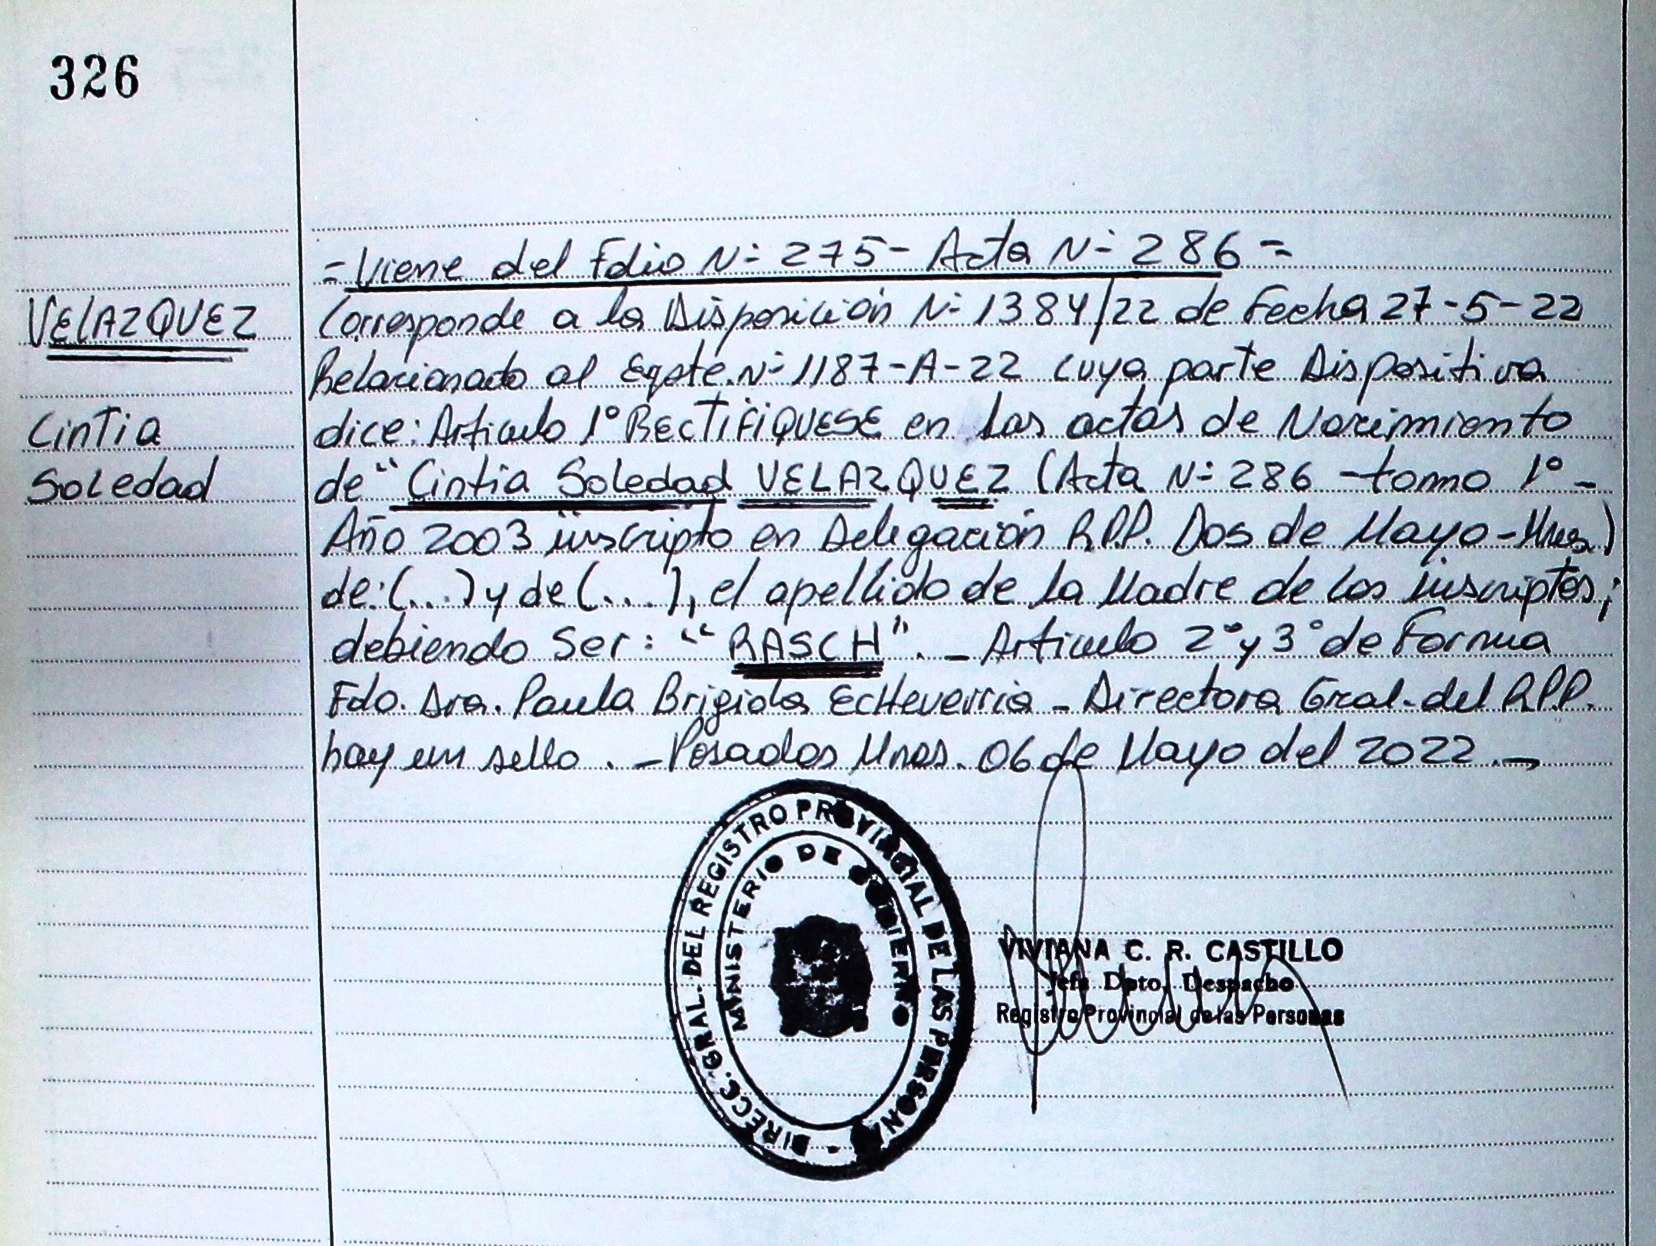 326
= Viene del Folio N: 275 - Acta N: 286 =
VELAZQUEZ
Corresponde a la Disposición N: 1384/22 de Fecha 27-5-22
Relacionado al Expte. N: 1187-A-22 cuya parte Dispositiva
Cintia
dice: Articulo 1° RECTIFIQUESE en las actas de Nacimiento
Soledad
de "Cintia Soledad VELAZQUEZ (Acta N: 286 - tomo 1° -
Año 2003 inscripto en Delegación R.P.P. Dos de Mayo - Mnes.)
de: (...) y de (...), el apellido de la Madre de los inscriptos;
debiendo Ser: "RASCH". - Articulo 2° y 3° de Forma
Fdo. Dra. Paula Brigida Echeverria - Directora Gral. del R.P.P.
hay un sello. - Posadas Mnes. 06 de Mayo del 2022. -
DIRECC. GRAL. DEL REGISTRO PROVINCIAL DE LAS PERSONAS
MINISTERIO DE GOBIERNO
VIVIANA C. R. CASTILLO
Jefa Dpto. Despacho
Registro Provincial de las Personas